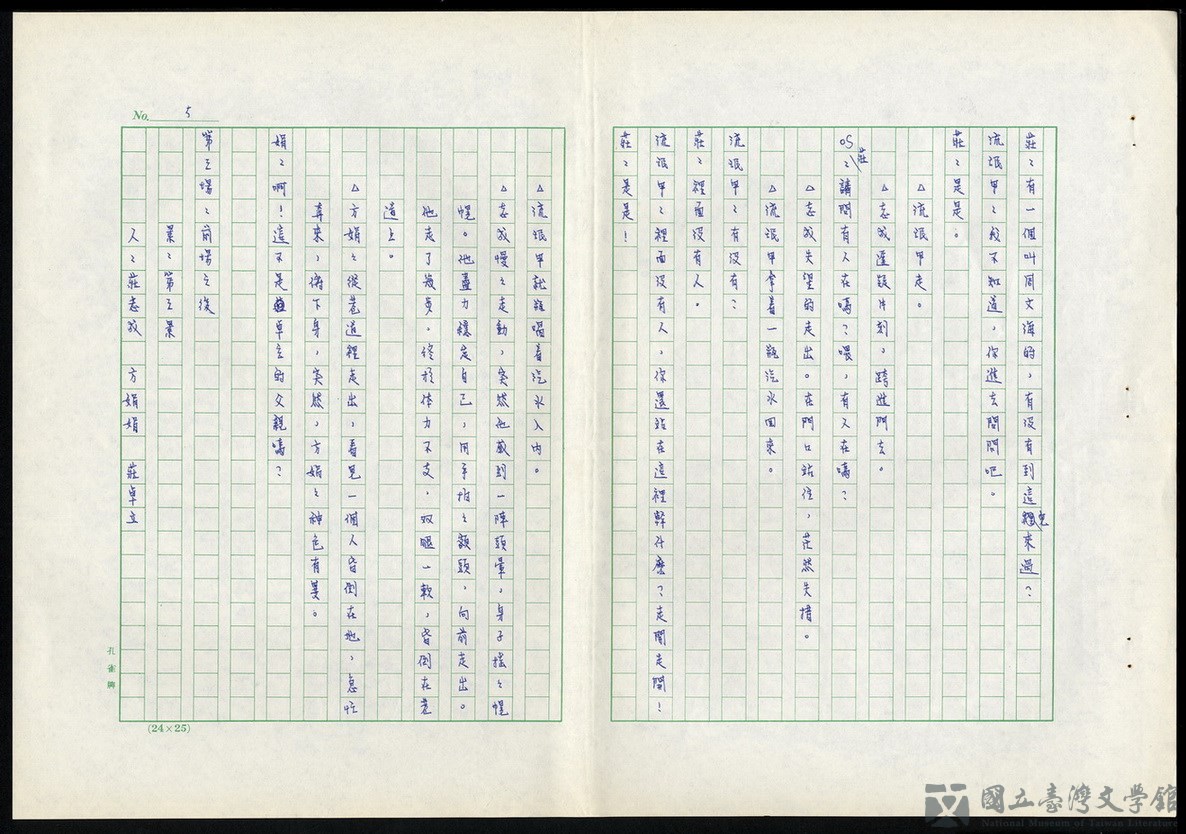 No. 5
莊：有一個叫周文海的，有沒有到這兒來過？
流氓甲：我不知道，你進去問問吧。
莊：是是。
△流氓甲走。
△志成遲疑片刻，跨進門去。
莊OS：請問有人在嗎？喂，有人在嗎？
△志成失望的走出。在門口站住，茫然失措。
△流氓甲拿着一瓶汽水回來。
流氓甲：有沒有？
莊：裡面沒有人。
流氓甲：裡面沒有人，你還站在這裡幹什麼？走開走開！
莊：是是！
△流氓甲就瓶喝着汽水入內。
△志成慢慢走動，突然他感到一陣頭暈，身子搖搖幌
幌。他盡力穩定自己，用手怕怕額頭，向前走出。
他走了幾步，終於体力不支，双腿一軟，昏倒在巷
道上。
△方娟娟從巷道裡走出，看見一個人昏倒在地，急忙
奔來，俯下身，突然，方娟娟神色有異。
娟：啊！這不是卓立的父親嗎？
第五場：前場之後
景：第五景
人：莊志成　方娟娟　莊卓立
孔雀牌
(24×25)
國立臺灣文學館
National Museum of Taiwan Literature